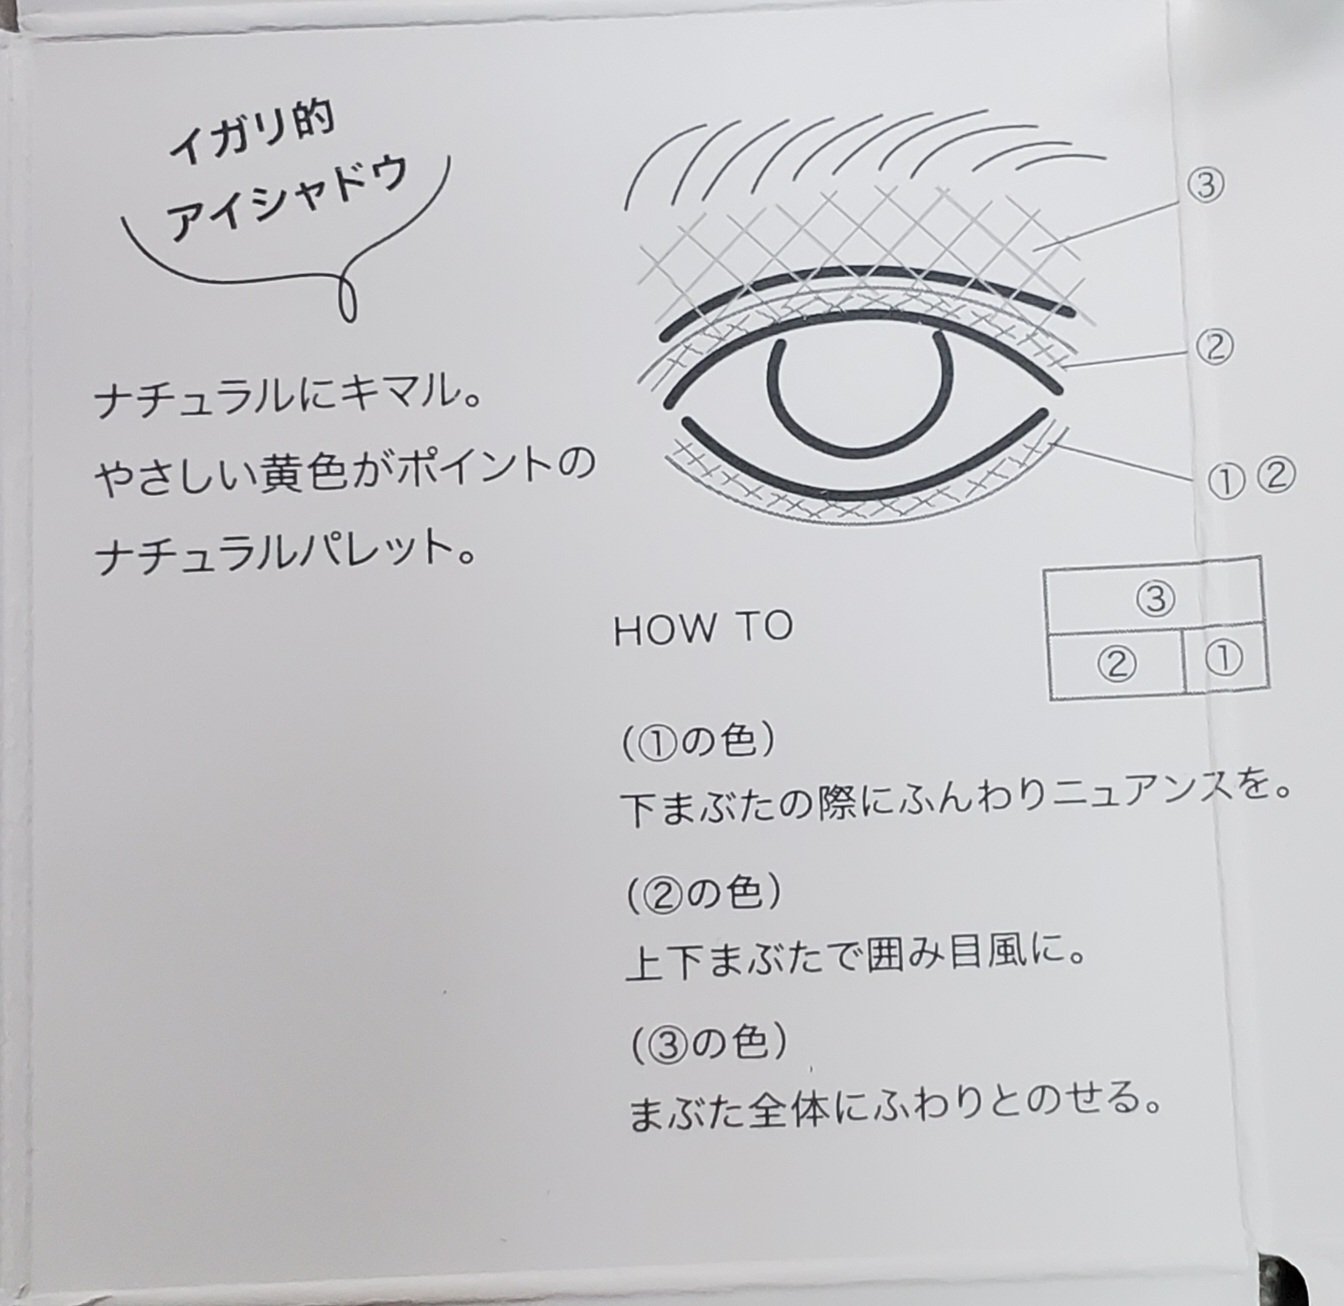 イガリ的
アイシャドウ
ナチュラルにキマル。
やさしい黄色がポイントの
ナチュラルパレット。
③
②
① ②
HOW TO
③
② ①
(①の色)
下まぶたの際にふんわりニュアンスを。
(②の色)
上下まぶたで囲み目風に。
(③の色)
まぶた全体にふわりとのせる。